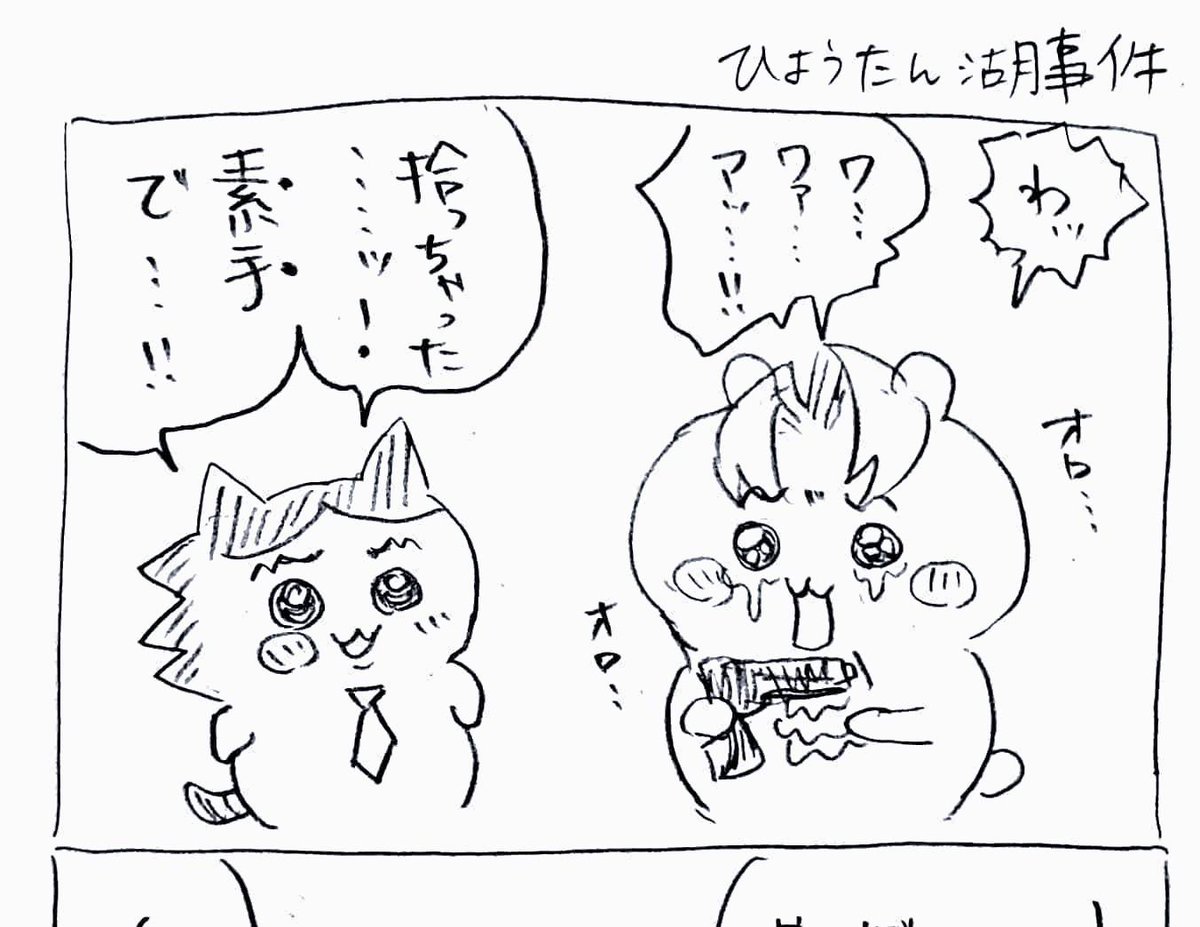 ひょうたん湖事件
わッ
ワ…
ワァ…
アッ…!!
オロ…
オロ…
拾っちゃった
……ッ!
素手
で……!!